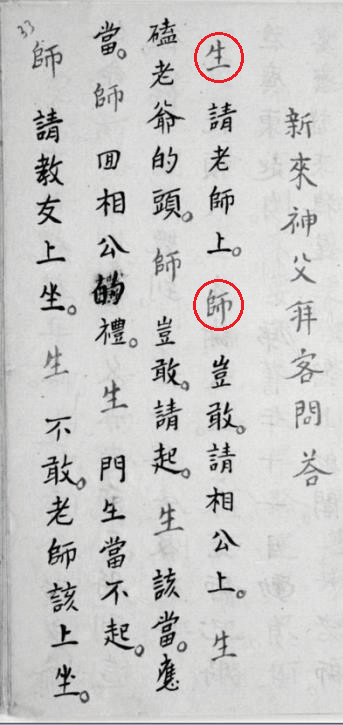 33
新來神父拜客問荅
生 請老師上。師 豈敢。請相公上。生
磕老爺的頭。師 豈敢。請起。生 該當。應
當。師 囬相公的禮。生 門生當不起。
師 請教友上坐。生 不敢。老師該上坐。